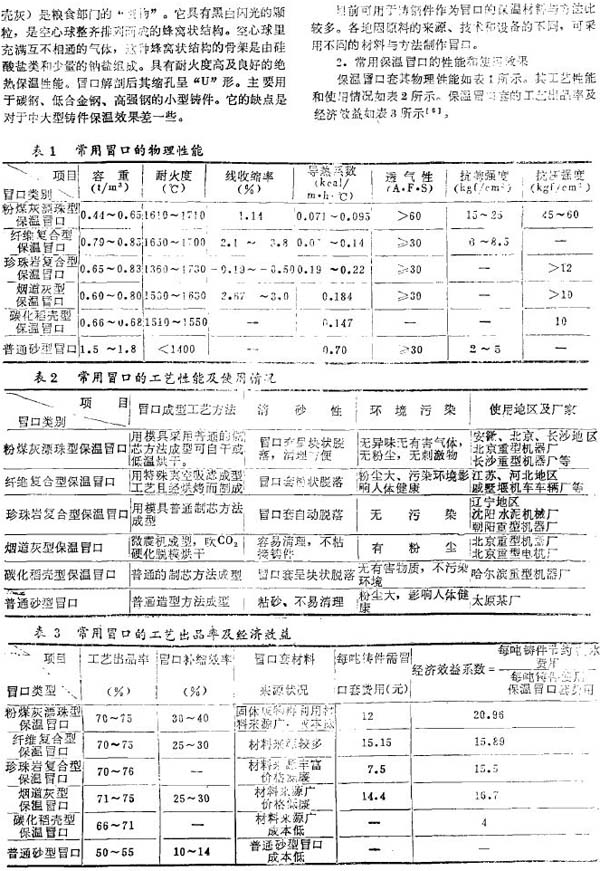 壳灰）是粮食部门的“
”。它具有黑白闪光的颗
粒，是空心球整齐排列而成的蜂窝状结构。空心球里
充满互不相通的气体，这种蜂窝状结构的骨架是由硅
酸盐类和少量的钠盐组成。具有耐火度高及良好的绝
热保温性能。冒口解剖后其缩孔呈“U”形。主要用
于碳钢、低合金钢、高强钢的小型铸件。它的缺点是
对于中大型铸件保温效果差一些。
目前可用于铸钢件作为冒口的保温材料与方法比
较多。各地因原料的来源、技术和设备的不同，可采
用不同的材料与方法制作冒口。
2．常用保温冒口的性能和使用效果
保温冒口套其物理性能如表1所示。其工艺性能
和使用情况如表2所示。保温冒口套的工艺出品率及
经济效益如表3所示
表1 常用冒口的物理性能
项目 容重 耐火度 线收缩率 导热系数 透气性 抗弯强度 抗压强度
(t/m³) (℃) (%) (kcal/m·h·℃) (A·F·S) (kgf/cm²) (kgf/cm²)
冒口类别
粉煤灰漂珠型保温冒口 0.44～0.65 1610～1710 1.14 0.071～0.095 >60 15～25 45～60
纤维复合型保温冒口 0.79～0.85 1650～1700 2.1～3.8 ～0.14 ≥30 6～8.5 —
珍珠岩复合型保温冒口 0.65～0.83 1360～1730 -0.19～-0.50 0.19～0.22 ≥30 — >12
烟道灰型保温冒口 0.60～0.80 1530～1630 2.67～3.0 0.184 ≥30 — >10
碳化稻壳型保温冒口 0.66～0.68 1510～1550 — 0.147 — — 10
普通砂型冒口 1.5～1.8 <1400 — 0.70 ≥30 2～5 —
表2 常用冒口的工艺性能及使用情况
项目 冒口成型工艺方法 清砂性 环境污染 使用地区及厂家
冒口类别
粉煤灰漂珠型保温冒口 用模具采用普通的制芯方法成型可自干或低温烘干。 冒口套呈块状脱落，清理方便 无异味无有害气体，无粉尘，无刺激物 安徽、北京、长沙地区 北京重型机器厂 长沙重型机器厂等
纤维复合型保温冒口 用特殊真空吸滤成型工艺且经烘烤而制成 冒口套粉状脱落 粉尘大、污染环境影响人体健康 江苏、河北地区 戚墅堰机车车辆厂等
珍珠岩复合型保温冒口 用模具普通制芯方法成型 冒口套自动脱落 无污染 辽宁地区 沈阳水泥机械厂 朝阳重型机器厂
烟道灰型保温冒口 微震机成型，吹CO₂硬化脱模烘干 容易清理，不粘接铸件 有粉尘 北京重型机器厂 北京重型电机厂
碳化稻壳型保温冒口 普通的制芯方法成型 冒口套呈块状脱落 无有害物质，不污染环境 哈尔滨重型机器厂
普通砂型冒口 普通造型方法成型 粘砂、不易清理 粉尘大，影响人体健康 太原某厂
表3 常用冒口的工艺出品率及经济效益
项目 工艺出品率 冒口补缩效率 冒口套材料 每吨铸件需冒 经济效益系数=每吨铸件节约
水费用
冒口类型 (%) (%) 来源状况 口套费用(元) 每吨铸件使用保温冒口套费用
粉煤灰漂珠型保温冒口 70～75 30～40 固体废物再利用材料来源广， 12 20.96
纤维复合型保温冒口 70～75 25～30 材料来源较多 15.15 15.89
珍珠岩复合型保温冒口 70～76 — 材料来源丰富价格低廉 7.5 15.5
烟道灰型保温冒口 71～75 25～30 材料来源广价格低廉 14.4 16.7
碳化稻壳型保温冒口 66～71 — 材料来源广成本低 — 4
普通砂型冒口 50～55 10～14 普通型砂冒口成本低 — —